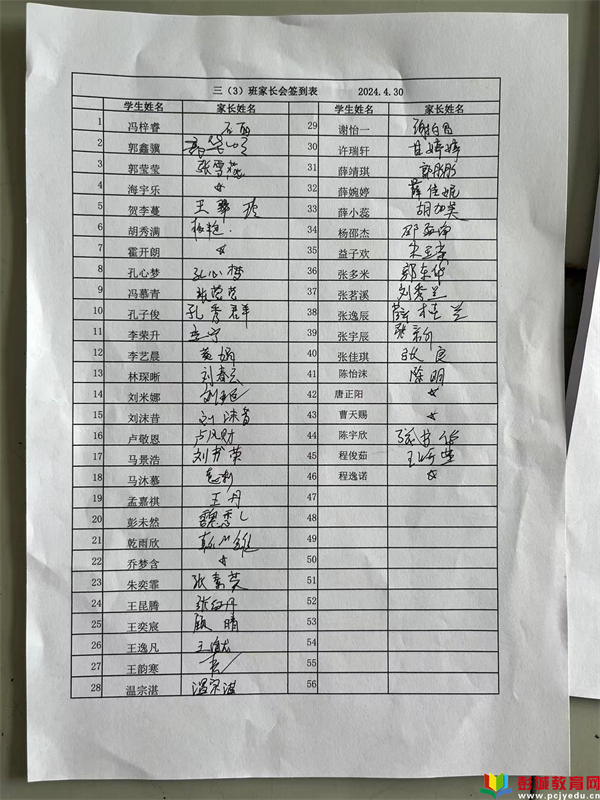 三（3）班家长会签到表 2024.4.30
学生姓名 家长姓名 学生姓名 家长姓名
1 冯梓睿 29 谢怡一
2 郭鑫骥 30 许瑞轩 甘婷婷
3 郭莹莹 张雪莲 31 薛靖琪 郭彤彤
4 海宇乐 ☆ 32 薛婉婷 薛佳妮
5 贺李蔓 王 33 薛小蕊 胡加美
6 胡秀满 34 杨邵杰
7 霍开朗 ☆ 35 益子欢
8 孔心梦 孔心梦 36 张多米 郭东华
9 冯慕青 张莹莹 37 张茗溪 刘秀兰
10 孔子俊 孔秀群 38 张逸辰 薛桂兰
11 李荣升 李宁 39 张宇辰 张新
12 李艺晨 黄娟 40 张佳琪 张良
13 林琛晰 刘春云 41 陈怡沫 陈明
14 刘米娜 42 唐正阳 ☆
15 刘沫昔 刘沫昔 43 曹天赐 ☆
16 卢敬恩 卢风财 44 陈宇欣
17 马景浩 刘书英 45 程俊茹
18 马沐慕 46 程逸诺 ☆
19 孟嘉祺 王丹 47
20 彭未然 魏秀 48
21 乾雨欣 49
22 乔梦含 ☆ 50
23 朱奕霏 张素英 51
24 王昆腾 张红丹 52
25 王奕宸 顾晴 53
26 王逸凡 54
27 王韵寒 55
28 温宗湛 温宗湛 56
彭城教育网
www.pcjyedu.cn